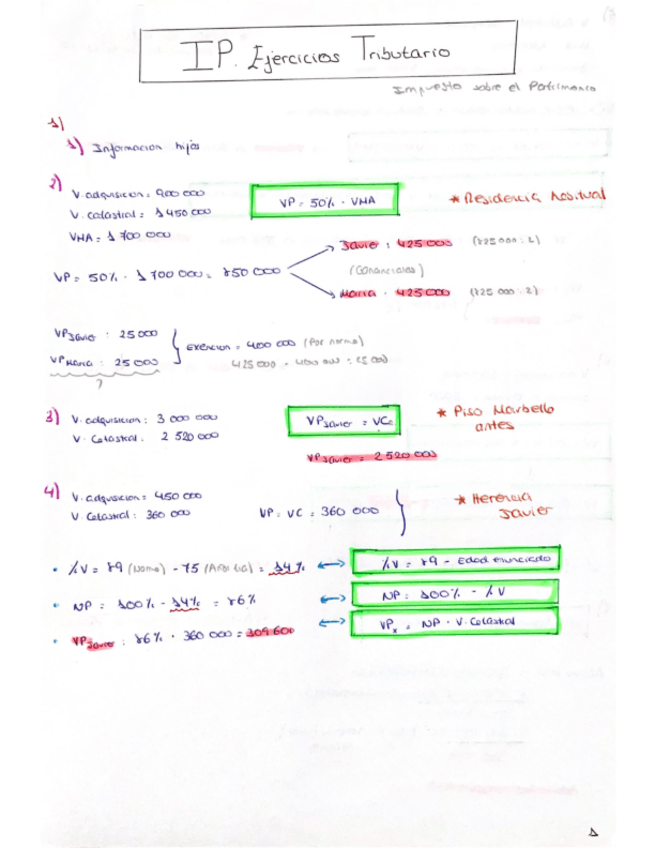 IP. Ejercicios Tributario
Impuesto sobre el Patrimonio
1)
1) Informacion hijos
2) V. adquisicion: 900 000
V. catastral: 1 450 000
VMA = 1 700 000
VP = 50% · VMA
* Residencia habitual
VP = 50% · 1 700 000 = 850 000
Javier : 425 000 (825 000 : 2)
(Gananciales)
Maria : 425 000 (825 000 : 2)
VP Javier : 25 000
VP Maria : 25 000
Exencion = 400 000 (Por norma)
425 000 - 400 000 = 25 000
?
3) V. adquisicion: 3 000 000
V. Catastral: 2 520 000
VP Javier = VC
* Piso Marbella antes
VP Javier = 2 520 000
4) V. adquisicion = 450 000
V. Catastral: 360 000
VP = VC = 360 000
* Herencia Javier
• %V = 89 (Norma) - 75 = 14%
%V = 89 - Edad enunciado
• NP = 100% - 14% = 86%
NP = 100% - %V
• VP Javier : 86% · 360 000 = 309 600
VPx = NP · V. Catastral
1